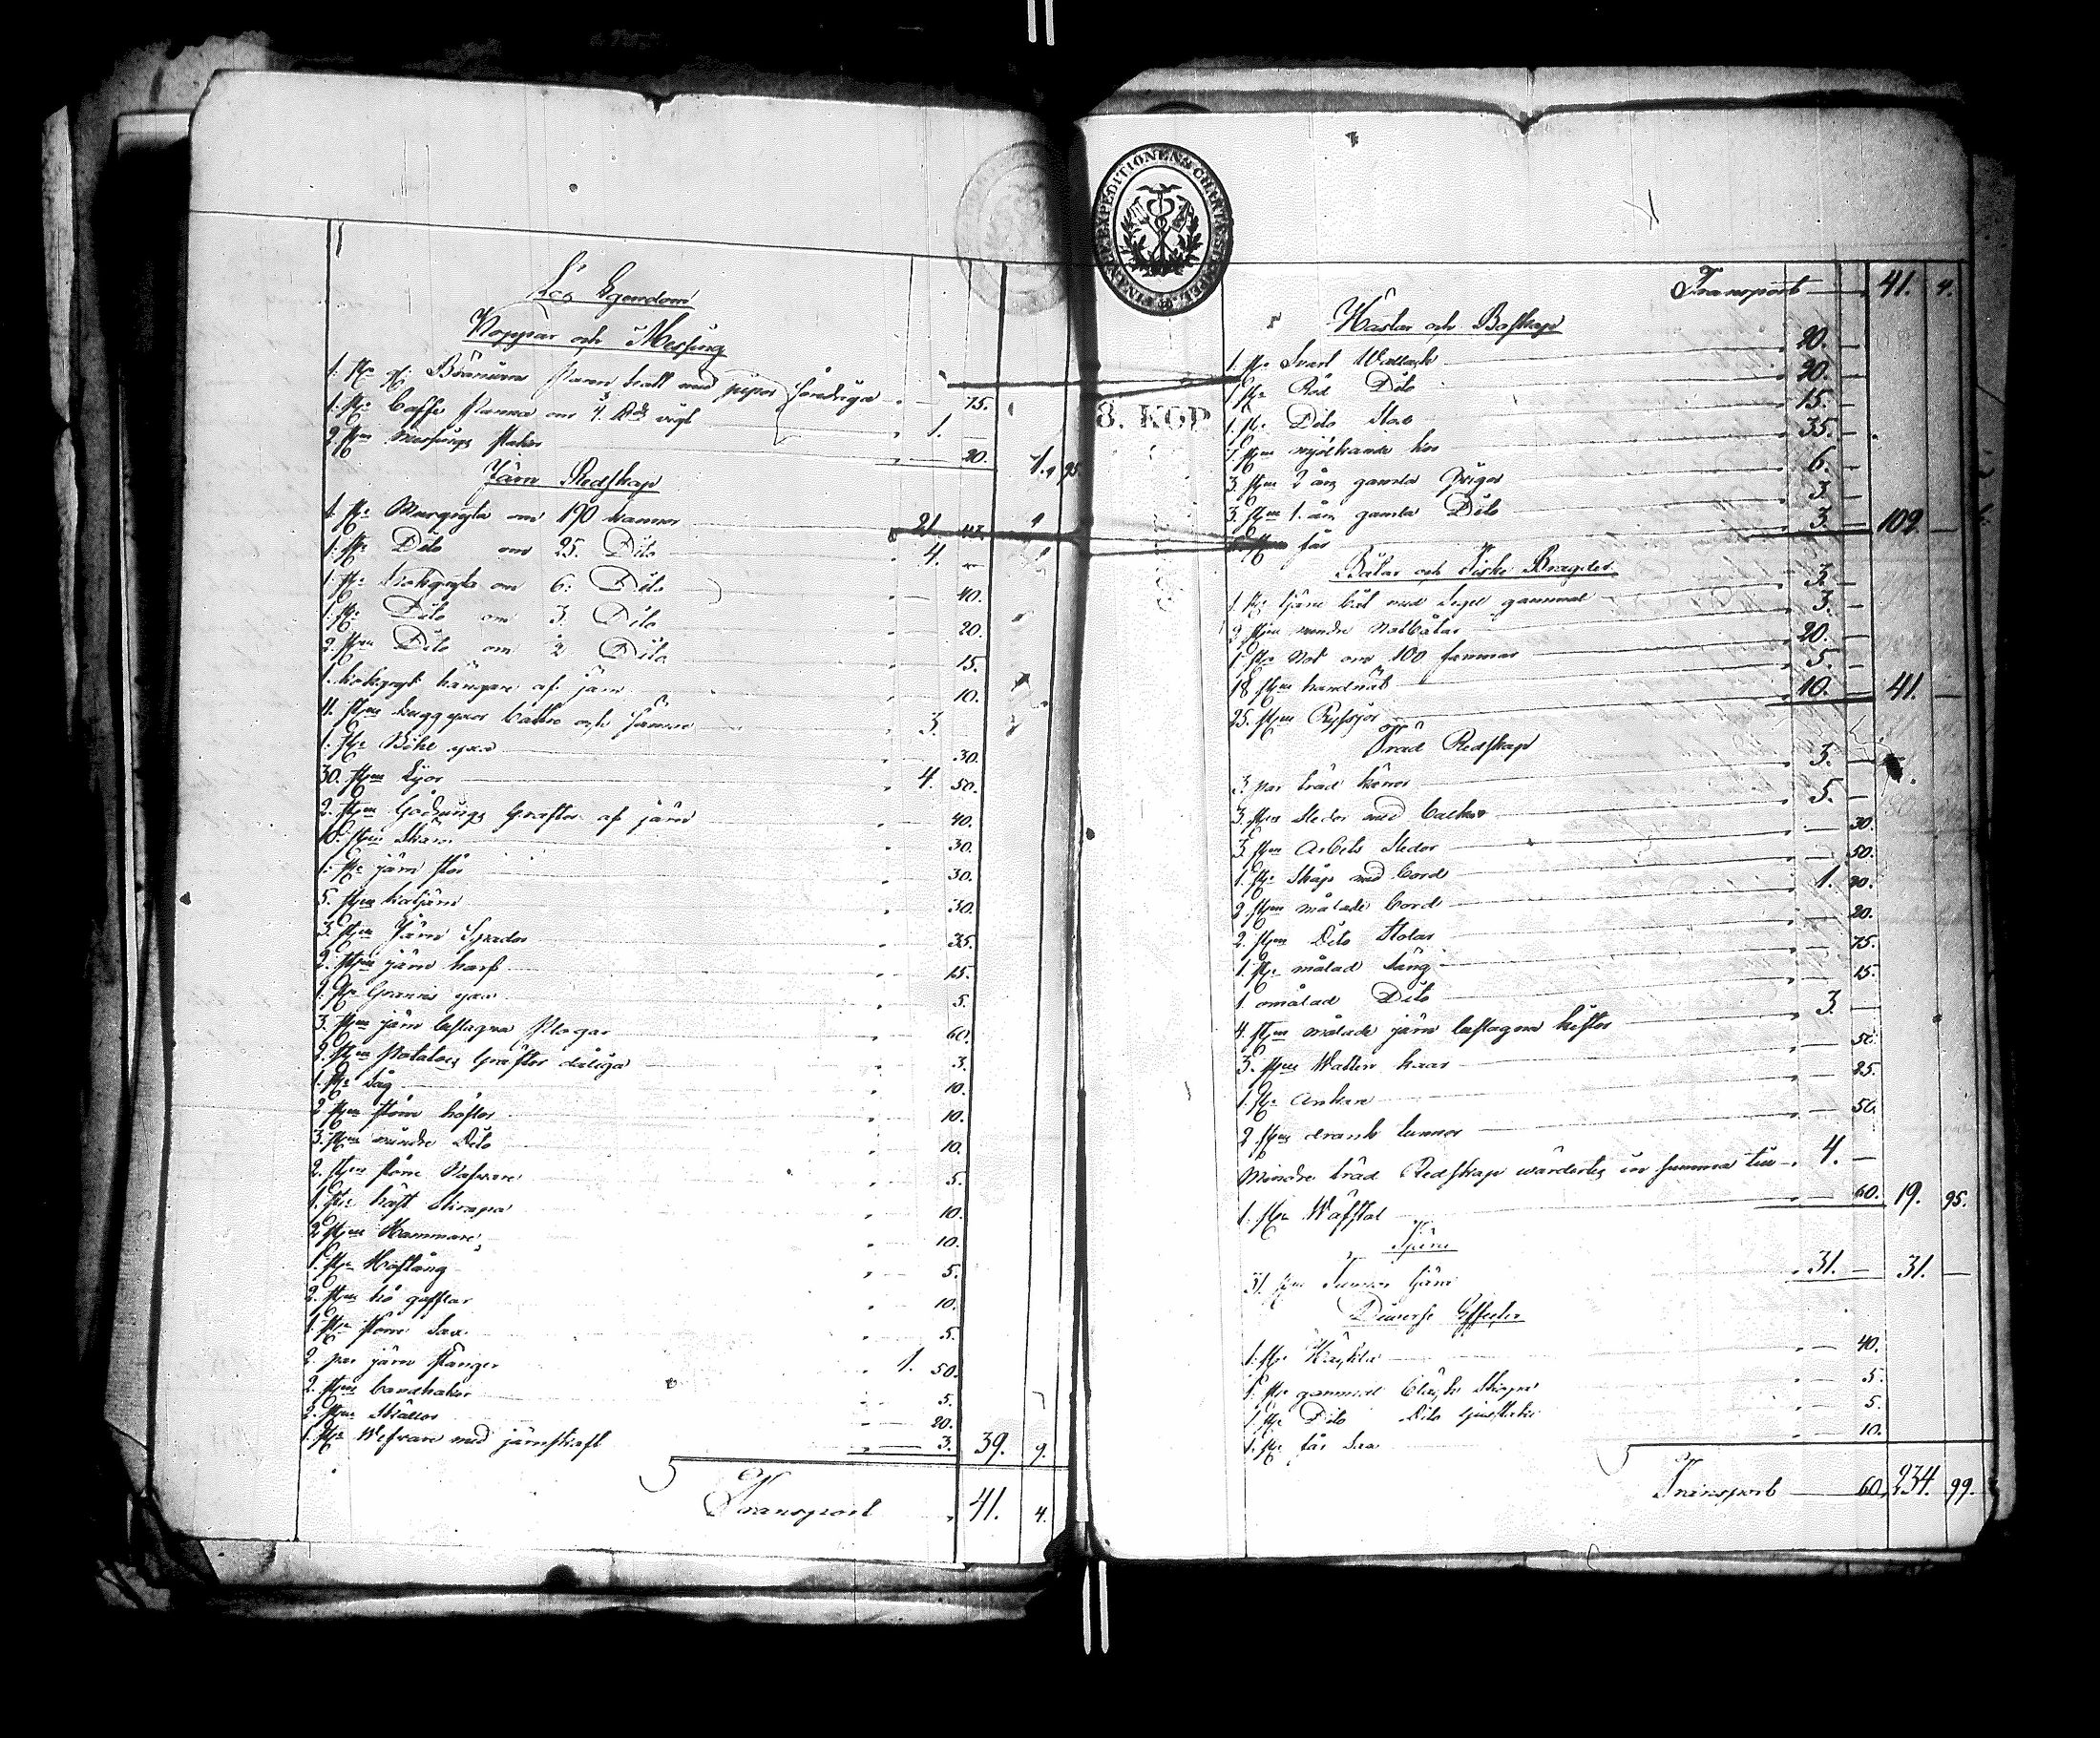 Lös Egendom
Koppar och Messing
1. st. Bränvins Panna hatt med pipor 75.
1. st. Caffe Panna om 1.
2. st. Messings stakar 20. 1. 95
Järn Redskap
1. st. Murgryta om 190 kannor 21.
1. st. Dito om 25. Dito 4.
1. st. Kokgryta om 6. Dito 40.
1. st. Dito om 3. Dito 20.
2. st. Dito om 2 Dito 15.
1. kokgryt hängare af järn 10.
11. st. huggyxor bättre och sämre 3.
1. st. Bihl yxa 30.
30. st. Lijor 4. 50.
2. st. Gödnings Gräftor af järn 40.
10. st. Skäror 30.
1. st. järn stör 30.
5. st. 30.
3. st. Järn Spador 35.
2. st. järn harf 15.
1. st. yxa 5.
3. st. järn beslagna Plogar 60.
2. st. Potatoes Gräftor dåliga 3.
1. st. Såg 10.
2 st. större höflor 10.
3. st. mindre Dito 10.
2. st. större Nafvare 5.
1. st. häst Skrapa 10.
2 st. Hammare 10.
1. st. Hoftång 5.
2. st. hö gafflar 10.
1. st. större Sax 5.
2. par järn stänger 1. 50.
2. st. bandhakar 5.
2. st. Skällor 20.
1. st. med järnskaft 3. 39. 9.
Transport 41. 4.
FINANS EXPEDITIONENS CHARTÆ STÄMPEL
8. KOP
Transport 41. 4.
Hästar och Boskap
1. st. Svart Wallack 20.
1 st. Röd Dito 20.
1. st. Dito Sto 15.
7. st. mjölkande kor 35.
3. st. 2 års gamla qvigor 6.
3. st. 1. års gamla Dito 3.
st. får 3. 102.
Båtar och Fiske Bragder
1. st. tjäru båt med Segel gammal 3.
2 st. mindre Notbåtar 3.
1. st. Not om 100 famnar 20.
18 st. 5.
25. st. Ryssjor 10. 41.
Träd Redskap
3 par träd kärror 3.
3. st. Slädor med 5.
3. st. Arbets Slädor 30.
1. st. Skåp med bord 50.
2 st. målade bord 1. 20.
2. st. Dito Stolar 20.
1. st. målad Säng 75.
1. omålad Dito 15.
4. st. målade järn beslagna kistor 3.
3. st. Watten kar 50.
1. st. Ankare 25.
2 st. drank tunnor 50.
Mindre träd Redskap wärderter en summa till 4.
1. st. Wäfstol 60. 19. 95.
Tjära
31. st. Tunnor tjära 31. 31.
Diverse Effecter
1. st. 40.
1. st. gammal 5.
1. st. Dito Dito ljusstake 5.
1. st. får Sax 10.
Transport 60. 234. 99.